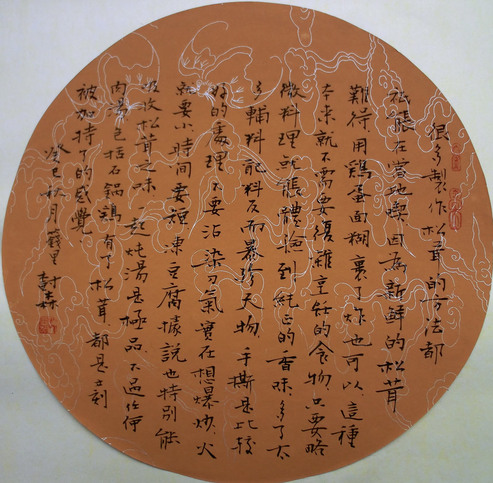 很多製作松茸的方法都
祇能在當地喫因為新鮮的松茸
難得用鷄蛋面糊裹了炸也可以這種
本來就不需要復雜烹飪的食物只要略
微料理就能體驗到純正的香味多了太
多輔料配料反而暴殄天物手撕是比較
好的處理不要沾染刀氣實在想爆炒火
就要小時間要短凍豆腐據説也特别能
吸收松茸之味 起炖湯是極品不過任何
肉湯包括石鍋鷄有了松茸都是立刻
被加持了的感覺
癸巳秋月 里 森